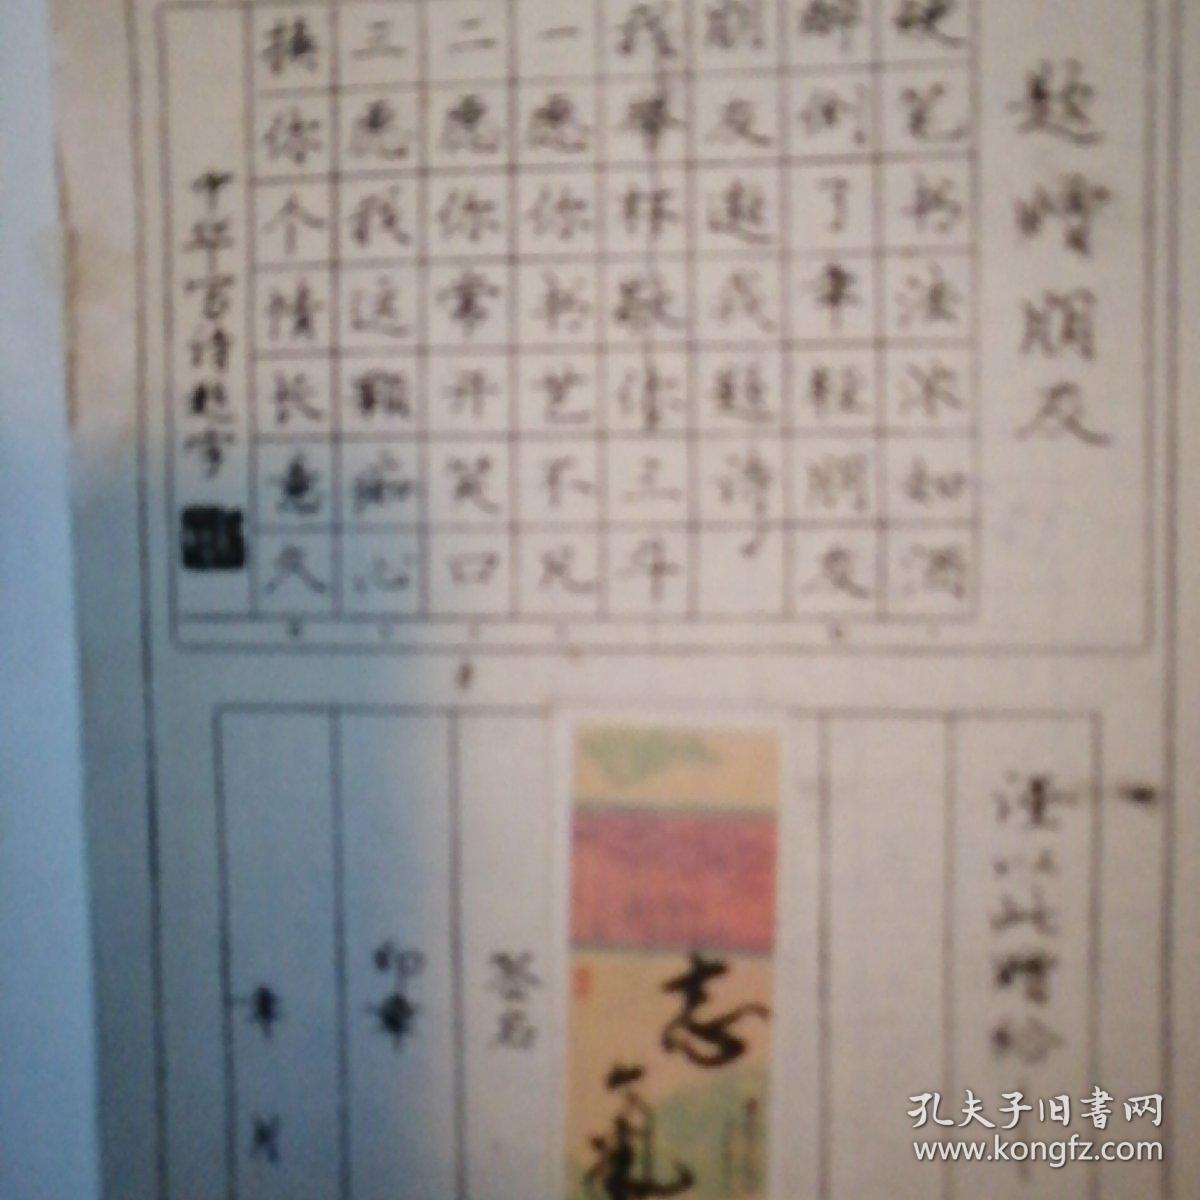 题赠朋友
硬笔书法浓如酒
醉倒了年轻朋友
朋友邀我题诗，
我举杯敬你三斗
一愿你书艺不凡
二愿你常开笑口
三愿我这颗痴心
换你个情长意久
中华 诗题字
谨以此赠给
志
气
签名
印章
年 月
孔夫子旧書网
www.kongfz.com